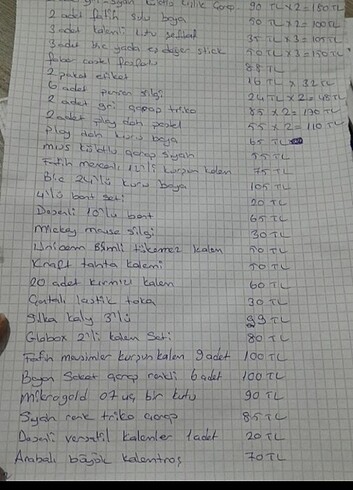 90 TL x 2 = 180 TL
2 adet fatih sulu boya 50 TL x 2 = 100 TL
3 adet 35 TL x 3 = 105 TL
3 adet bic yada eş değer stick 50 TL x 3 = 150 TL
faber castel 88 TL
2 paket etiket 16 TL x 32 TL
6 adet silgi 24 TL x 2 = 48 TL
2 adet gri çorap triko 85 x 2 = 170 TL
2 adet play doh pastel 55 x 2 = 110 TL
play doh kuru boya 65 TL
mus külotlu çorap siyah 55 TL
Fatih mercanlı 12'li kurşun kalem 75 TL
Bic 24'lü kuru boya 105 TL
4'lü bant seti 20 TL
Desenli 10'lu bant 65 TL
Mickey mause silgi 30 TL
Unicorn tükenmez kalem 50 TL
Kraft tahta kalemi 50 TL
20 adet kırmızı kalem 60 TL
lastik toka 30 TL
Silka 3'lü 99 TL
Globox 2'li kalem Seti 80 TL
Fatih kurşun kalem 9 adet 100 TL
Bayan Soket çorap renkli 6 adet 100 TL
Mikrogold 07 uç bir kutu 90 TL
Siyah renk triko çorap 85 TL
Desenli versatil kalemler 1 adet 20 TL
Arabalı büyük kalemtraş 70 TL